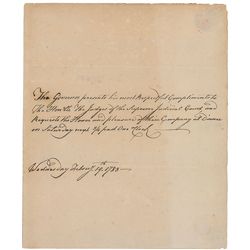 The Governor presents his most Respectful Compliments to
The Hon'ble The Judges of the Supreme Judicial Court, and
Requests the Honor and pleasure of their Company at Dinner
on Saturday next ½ past One o'Clock
Wednesday Feb'ry 19th 1783